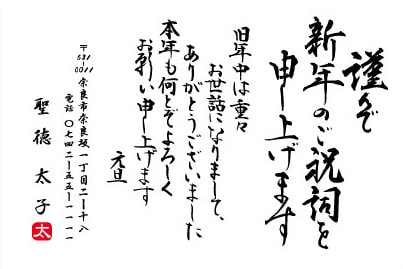 謹んで
新年のご祝詞を
申し上げます
旧年中は重々
お世話になりまして、
ありがとうございました
本年も何とぞよろしく
お願い申し上げます
元旦
〒631-0011
奈良市奈良坂一丁目二-十八
電話 〇七四二-五五-一一一一
聖徳太子
太